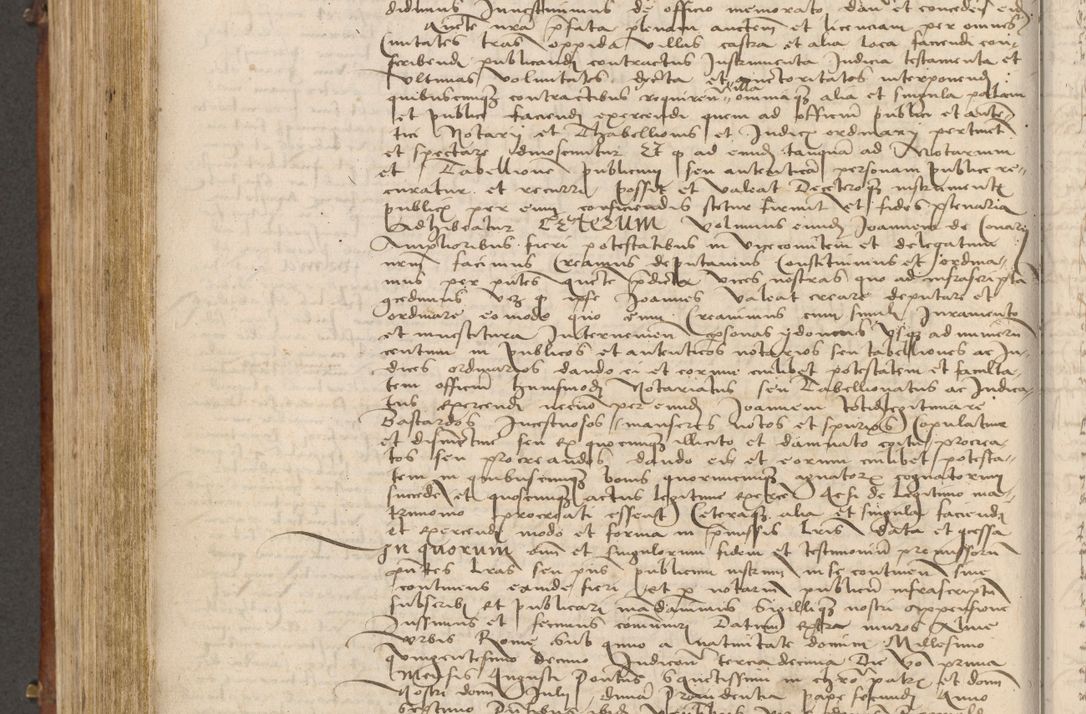 didimus Investimus de officio memorato dan et conceden eid
Aucte nra pfata plenam auctem et licenciam per omnes
Civitates tras oppida villas castra et alia loca faciendi con-
scribendi publicandi contractus Instrumenta Iudicia testamenta et
ultimas voluntates decreta et auctoritates interponendi
quibuscunqz contractibus requiren illa omniaqz alia et singula palam
et public faciendi exercendi quem ad officium publici et auten-
tici Notarij et Thabellionis et Iudicis ordinarij pertinet
et spectare dinoscuntur Et q ad eund tanquam ad Notarium
et Tabellione publicum seu autenticam personam publice re-
curatur et recurri possit et valeat Deceteroqz instrumentis
publicis per eum conficiendis stetur firmit et fides plenaria
adhibeatur CETERUM volumus eund Joannem de Conarij
Amplioribus fieri potestatibus in vicecomitem et delegatum
nrm facimus Creamus deputamus Constituimus et ordina-
mus per pntes Aucte pdicta vices nostras quo ad infrascripta
gedimus vez q ipse Joannes valeat creare deputare et
ordinare eo modo quo eum Creavimus cum simili Juramento
et investitura Intervenien psonas ydoneas usqz ad numerum
centum in publicos et autenticos notarios seu tabelliones ac Ju-
dices ordinarios dando ei et eorum cuilibet potestatem et faculta-
tem officium huiusmodi Notariatus seu Tabellionatus ac Iudica-
tus exercendi necno per eund Joannem legitimare
Bastardos Incestuosos manseres notos et spurios Copulatim
et disiunctim seu ex quocunqz illicito et damnato coitu procrea-
tos seu procreandos dando eis et eorum cuilibet potesta-
tem in quibuscunqz bonis quorumcunqz agnatorum cognatorum
succeden et quoscunqz actus legitime exercen Acsi de legitimo ma-
trimonio procreati essent Ceteraqz alia et singula faciendi
et exercendi modo et forma in pmissis lris data et gcessa
In quorum oim et singulorum fidem et testimonium premissorum
pntes lras seu pns publicum instrum in se continen sive
continens exinde fieri et p notarium publicum infrascriptum
subscribi et publicari mandavimus Sigilliqz nostri appensione
Iussimus et fecimus communiri Datum extra muros Alme
Urbis Rome Sub anno a nativitate domini Millesimo
quingentesimo decimo Indicione terciadecima Die vo prima
Mensis Augusti Pontus Sanctissimi in chro patris et domi
Nostri domi Julij divina Providentia Pape secundi Anno
septimo